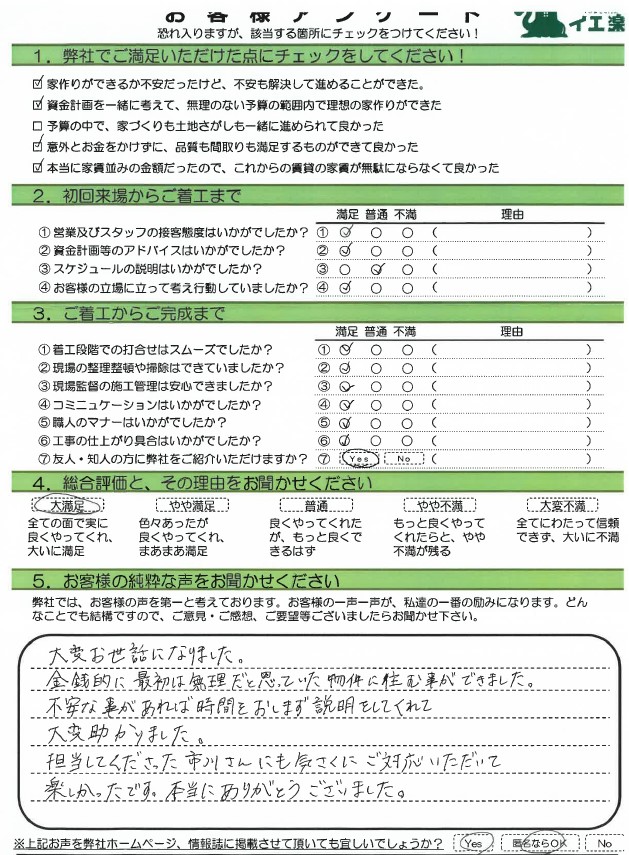 お客様アンケート
恐れ入りますが、該当する箇所にチェックをつけてください！
イエ楽
1. 弊社でご満足いただけた点にチェックをしてください！
☑ 家作りができるか不安だったけど、不安も解決して進めることができた。
☑ 資金計画を一緒に考えて、無理のない予算の範囲内で理想の家作りができた
□ 予算の中で、家づくりも土地さがしも一緒に進められて良かった
☑ 意外とお金をかけずに、品質も間取りも満足するものができて良かった
☑ 本当に家賃並みの金額だったので、これからの賃貸の家賃が無駄にならなくて良かった
2. 初回来場からご着工まで
満足 普通 不満 理由
① 営業及びスタッフの接客態度はいかがでしたか？ ① ○ ○ ○ （ ）
② 資金計画等のアドバイスはいかがでしたか？ ② ○ ○ ○ （ ）
③ スケジュールの説明はいかがでしたか？ ③ ○ ○ ○ （ ）
④ お客様の立場に立って考え行動していましたか？ ④ ○ ○ ○ （ ）
3. ご着工からご完成まで
満足 普通 不満 理由
① 着工段階での打合せはスムーズでしたか？ ① ○ ○ ○ （ ）
② 現場の整理整頓や掃除はできていましたか？ ② ○ ○ ○ （ ）
③ 現場監督の施工管理は安心できましたか？ ③ ○ ○ ○ （ ）
④ コミニュケーションはいかがでしたか？ ④ ○ ○ ○ （ ）
⑤ 職人のマナーはいかがでしたか？ ⑤ ○ ○ ○ （ ）
⑥ 工事の仕上がり具合はいかがでしたか？ ⑥ ○ ○ ○ （ ）
⑦ 友人・知人の方に弊社をご紹介いただけますか？ ⑦ Yes No （ ）
4. 総合評価と、その理由をお聞かせください
大満足 やや満足 普通 やや不満 大変不満
全ての面で実に 色々あったが 良くやってくれた もっと良くやって 全てにわたって信頼
良くやってくれ、 良くやってくれ、 が、もっと良くで くれたらと、やや できず、大いに不満
大いに満足 まあまあ満足 きるはず 不満が残る
5. お客様の純粋な声をお聞かせください
弊社では、お客様の声を第一と考えております。お客様の一声一声が、私達の一番の励みになります。どん
なことでも結構ですので、ご意見・ご感想、ご要望等ございましたらお聞かせ下さい。
大変お世話になりました。
金銭的に最初は無理だと思っていた物件に住む事ができました。
不安な事があれば時間をおしまず説明をしてくれて
大変助かりました。
担当してくださった市川さんにも気さくにご対応いただいて
楽しかったです。本当にありがとうございました。
※上記お声を弊社ホームページ、情報誌に掲載させて頂いても宜しいでしょうか？ Yes 匿名ならOK No